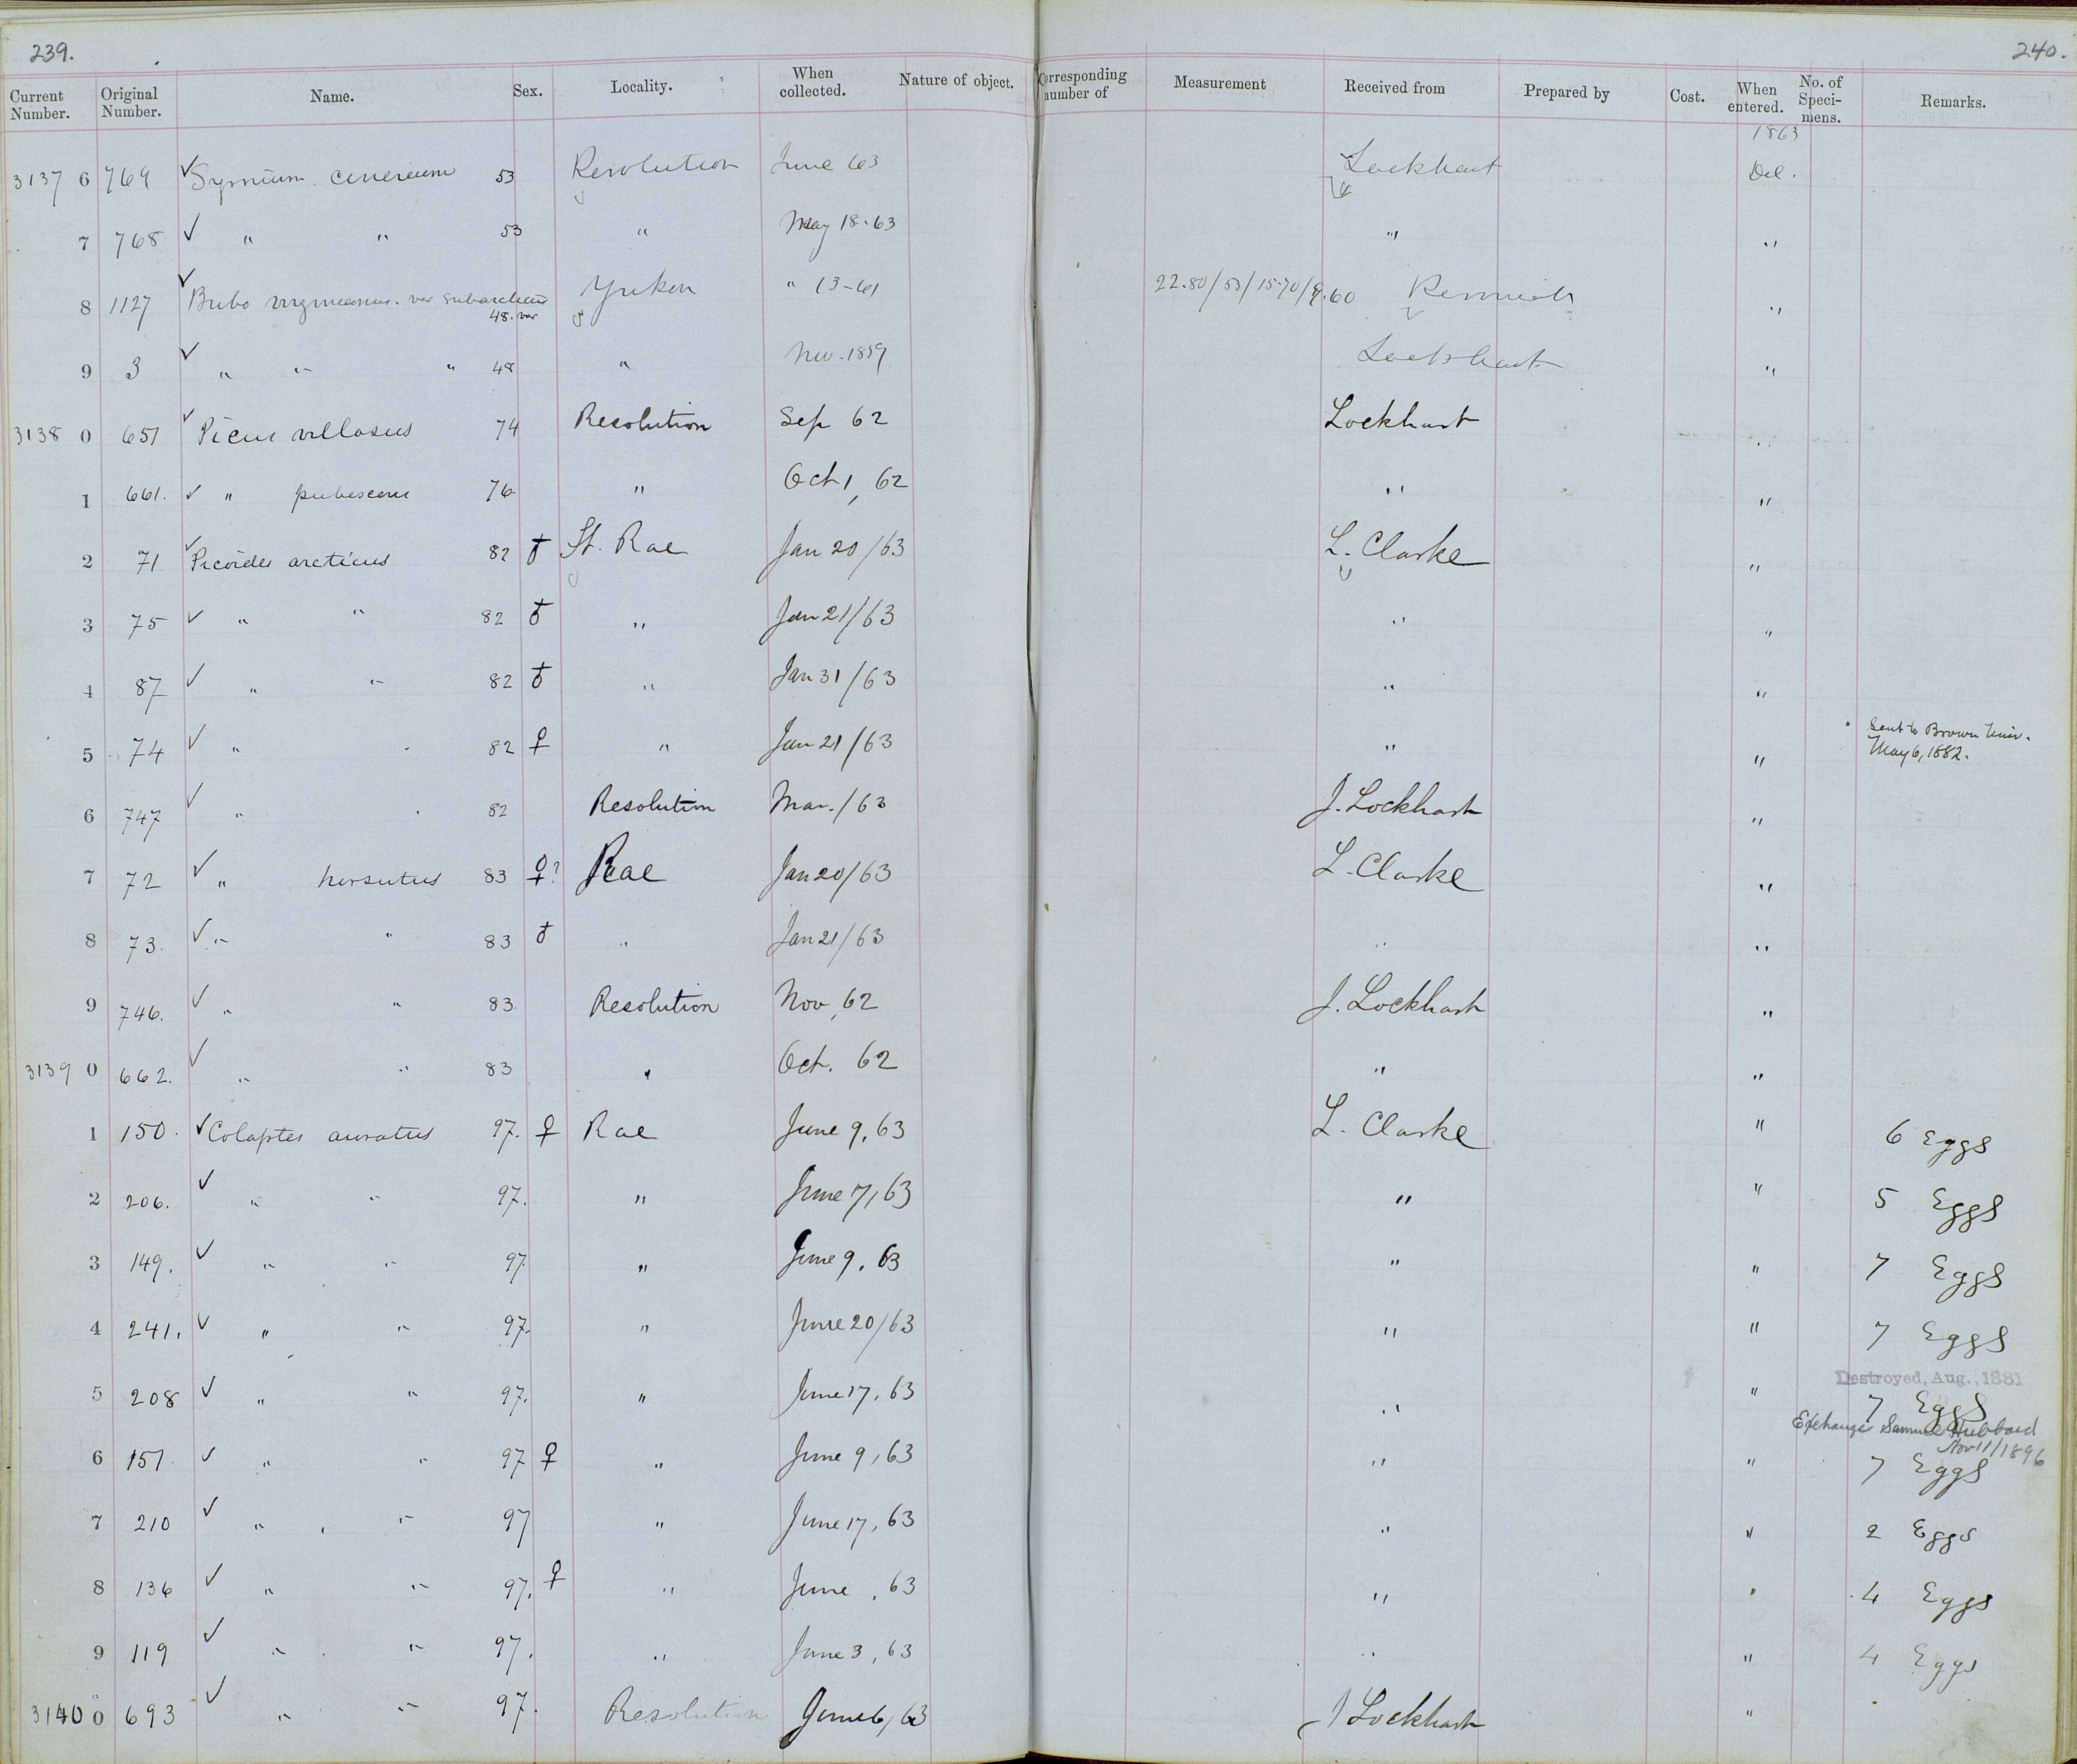 239.
240.
Current Number. Original Number. Name. Sex. Locality. When collected. Nature of object. Corresponding number of Measurement Received from Prepared by Cost. When entered. No. of Speci-mens. Remarks.
1863
3137 6 769 ✓ Syrnium cinereum 53 Resolution June 63 Lockhart Dec.
7 768 ✓ " " 53 " May 18.63 " "
8 1127 ✓ Bubo virginianus. var subarcticus 48. var Yukon " 13-61 22.80/53/15.70/9.60 Kennicott "
9 3 ✓ " " " 48 " Nov. 1859 Lockhart "
3138 0 651 ✓ Picus villosus 74 Resolution Sep 62 Lockhart "
1 661. ✓ " pubescens 76 " Oct 1, 62 " "
2 71 ✓ Picoides arcticus 82 ♂ Ft. Rae Jan 20/63 L. Clarke "
3 75 ✓ " " 82 ♂ " Jan 21/63 " "
4 87 ✓ " " 82 ♂ " Jan 31/63 " "
5 74 ✓ " " 82 ♀ " Jan 21/63 " " Sent to Brown Univ. May 6, 1882.
6 747 ✓ " " 82 Resolution Mar./63 J. Lockhart "
7 72 ✓ " hirsutus 83 ♀? Rae Jan 20/63 L. Clarke "
8 73. ✓ " " 83 ♂ " Jan 21/63 " "
9 746. ✓ " " 83. Resolution Nov, 62 J. Lockhart "
3139 0 662. ✓ " " 83 " Oct. 62 " "
1 150. ✓ Colaptes auratus 97. ♀ Rae June 9, 63 L. Clarke " 6 Eggs
2 206. ✓ " " 97. " June 17, 63 " " 5 Eggs
3 149. ✓ " " 97 " June 9, 63 " " 7 Eggs
4 241. ✓ " " 97. " June 20/63 " " 7 Eggs
Destroyed, Aug., 1881
5 208 ✓ " " 97. " June 17, 63 " " 7 Eggs
Exchange Samuel Hubbard Nov 11/1896
6 151. ✓ " " 97 ♀ " June 9, 63 " " 7 Eggs
7 210 ✓ " " 97 " June 17, 63 " " 2 Eggs
8 136 ✓ " " 97. ♀ " June , 63 " " 4 Eggs
9 119 ✓ " " 97. " June 3, 63 " " 4 Eggs
3140 0 693 ✓ " " 97. Resolution June 6, 63 J Lockhart "